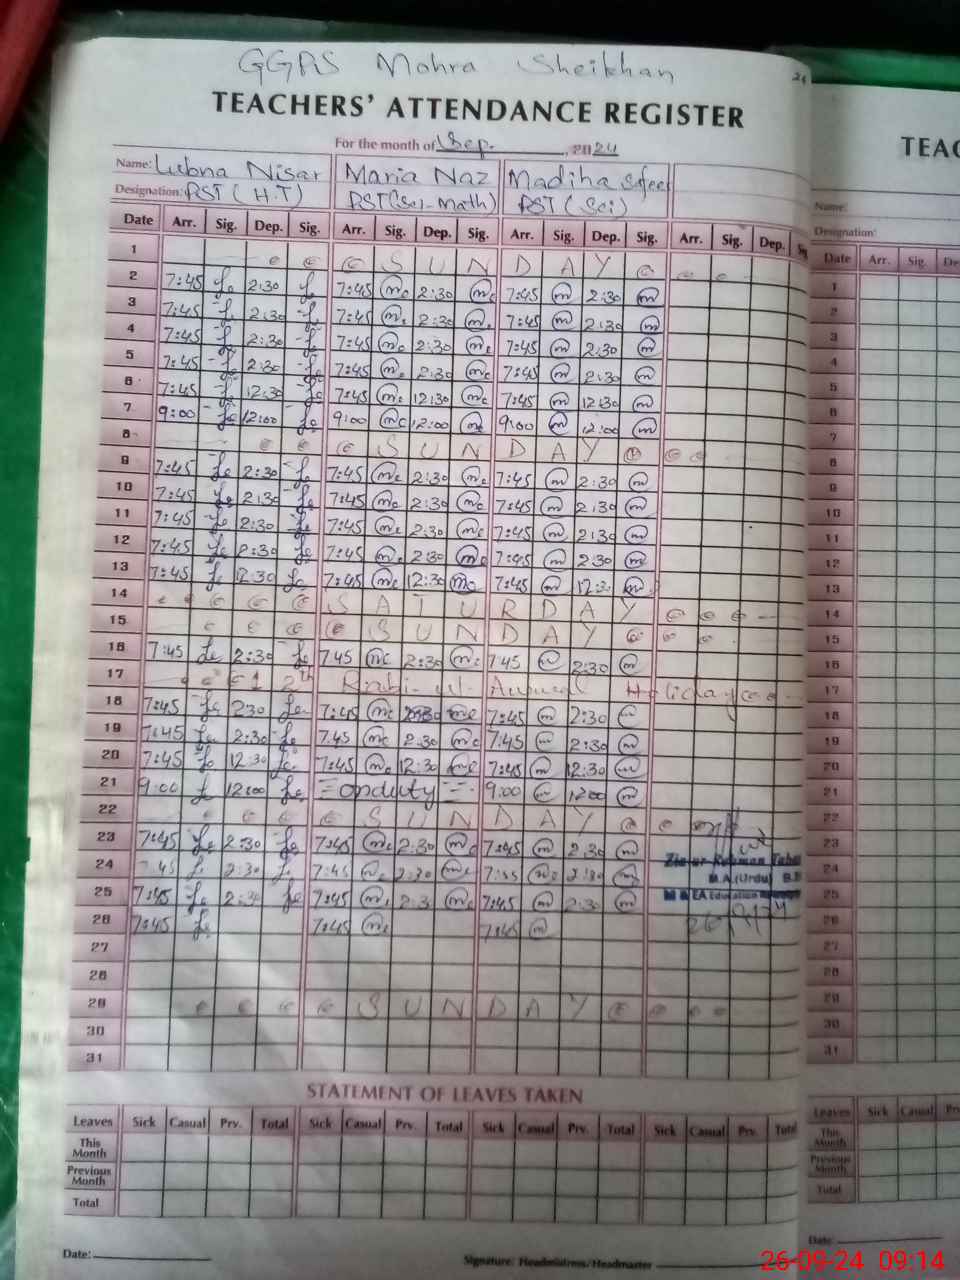 GGPS Mohra Sheikhan
24
TEACHERS' ATTENDANCE REGISTER
For the month of Sep. , 2024
Name: Lubna Nisar Maria Naz Madiha Safeer
Designation: PST (H.T) PST (Sci-Math) PST (Sci)
Date Arr. Sig. Dep. Sig. Arr. Sig. Dep. Sig. Arr. Sig. Dep. Sig. Arr. Sig. Dep.
1 SUNDAY
2 7:45 2:30 7:45 2:30 7:45 2:30
3 7:45 2:30 7:45 2:30 7:45 2:30
4 7:45 2:30 7:45 2:30 7:45 2:30
5 7:45 2:30 7:45 2:30 7:45 2:30
6 7:45 12:30 7:45 12:30 7:45 12:30
7 9:00 12:00 9:00 12:00 9:00 12:00
8 SUNDAY
9 7:45 2:30 7:45 2:30 7:45 2:30
10 7:45 2:30 7:45 2:30 7:45 2:30
11 7:45 2:30 7:45 2:30 7:45 2:30
12 7:45 2:30 7:45 2:30 7:45 2:30
13 7:45 12:30 7:45 12:30 7:45 12:30
14 SATURDAY
15 SUNDAY
16 7:45 2:30 7:45 2:30 7:45 2:30
17 12th Rabi-ul-Awwal Holiday
18 7:45 230 7:45 7:45 2:30
19 7:45 2:30 7:45 2:30 7:45 2:30
20 7:45 12:30 7:45 12:30 7:45 12:30
21 9:00 12:00 onduty 9:00 1200
22 SUNDAY
23 7:45 2:30 7:45 2:30 7:45 2:30
24 7:45 2:30 7:45 2:30 2:30
25 7:45 2:30 7:45 2:3 7:45 2:3
26 7:45 7:45 7:45
27
28
29 SUNDAY
30
31
Zia ur Rehman
M.A (Urdu)
M & EA Education
26/9/24
STATEMENT OF LEAVES TAKEN
Leaves Sick Casual Prv. Total Sick Casual Prv. Total Sick Casual Prv. Total Sick Casual Prv. Total
This Month
Previous Month
Total
Date: Signature: Headmistress/Headmaster
TEAC
Name:
Designation:
Date Arr. Sig. De
1
2
3
4
5
6
7
8
9
10
11
12
13
14
15
16
17
18
19
20
21
22
23
24
25
26
27
28
29
30
31
Leaves Sick Casual Pr
This Month
Previous Month
Total
Date:
26-09-24 09:14